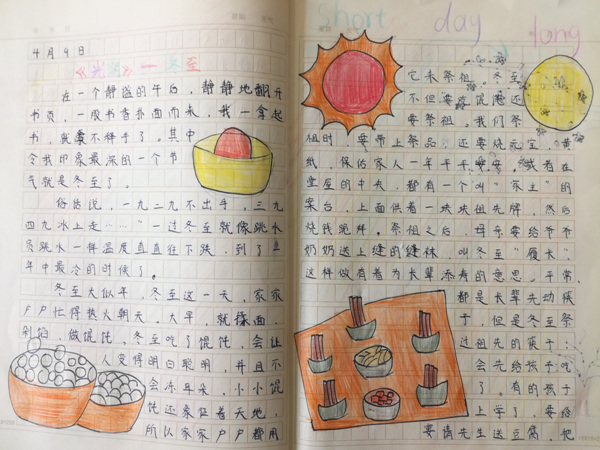 4月9日
《光阴》—冬至
在一个静谧的午后，静静地翻开
书页，一股书香扑面而来，我一拿起
书，就爱不释手了。其中
令我印象最深的一个节
气就是冬至了。
俗话说，一九二九不出手，三九
四九冰上走……”一过冬至就像跳水
员跳水一样温度直直往下跌，到了
年中最冷的时候了。
冬至大似年，冬至这一天，家家
户户忙得热火朝天，大早就揉面，
剁馅，做馄饨，冬至吃了馄饨，会让
人变得明白聪明，并且不
会冻耳朵，小小馄
饨还象征着天地，
所以家家户户都用
short day long
它来祭祖。冬至
不但要吃馄饨还
要祭祖。我们祭
祖时，要带上祭品，还要烧元宝，黄
纸，保佑家人一年平平安安。或者在
堂屋的中央，都有一个叫“家主”的
案台，上面供着一块块祖先牌，然后
烧钱跪拜。祭祖之后，母亲要给爷爷
奶奶送上缝的缝袜，叫冬至“履长”，
这样做有着为长辈添寿的意思。平常，
都是长辈先动筷
子，但是冬至祭
过祖先的筷子：
会先给孩子吃
了，有的孩子
上学了，要给
要请先生送豆腐，把